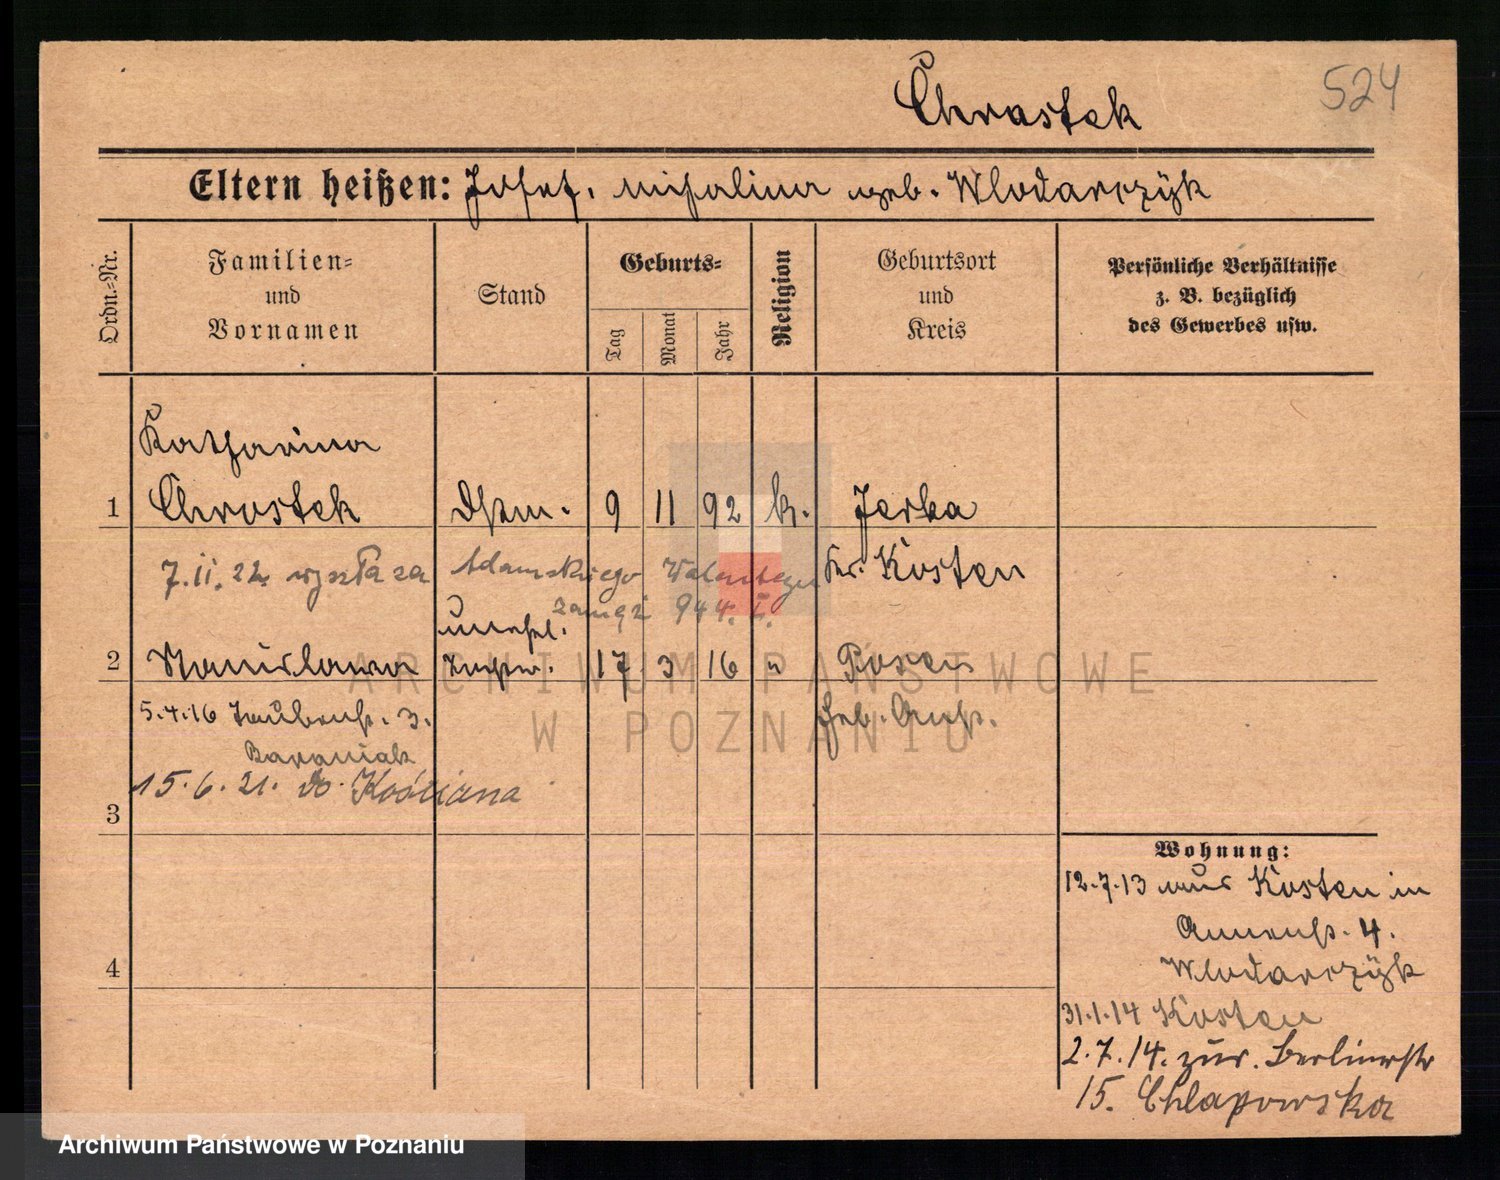 Chrastek
524
Eltern heißen: Josef, Michalina geb. Wlodarczyk
Ordn.-Nr.
Familien-
und
Vornamen
Stand
Geburts-
Tag
Monat
Jahr
Religion
Geburtsort
und
Kreis
Persönliche Verhältnisse
z. B. bezüglich
des Gewerbes usw.
Katharina
1 Chrastek Dstm. 9 11 92 k. Jerka
Kr. Kosten
7.II.22. wyszła za Adamskiego Walentego
zamąż 944. I.
unehel.
2 Stanislawa Tochter. 17 3 16 " Posen
5.4.16 Taubenstr. 3. Heb. Anst.
Baraniak
15.6.21. do Kościana
3
Wohnung:
12.7.13 aus Kosten in
Annenstr. 4.
Wlodarczyk
4
31.1.14 Kosten
2.7.14. zur. Berlinerstr
15. Chlapowska
ARCHIWUM PAŃSTWOWE
W POZNANIU
Archiwum Państwowe w Poznaniu